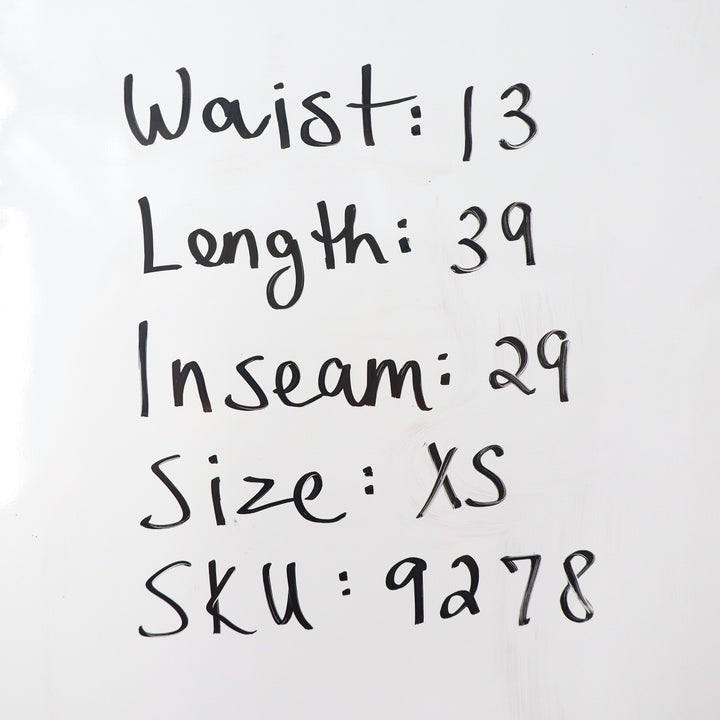 Waist: 13
Length: 39
Inseam: 29
Size: XS
SKU: 9278